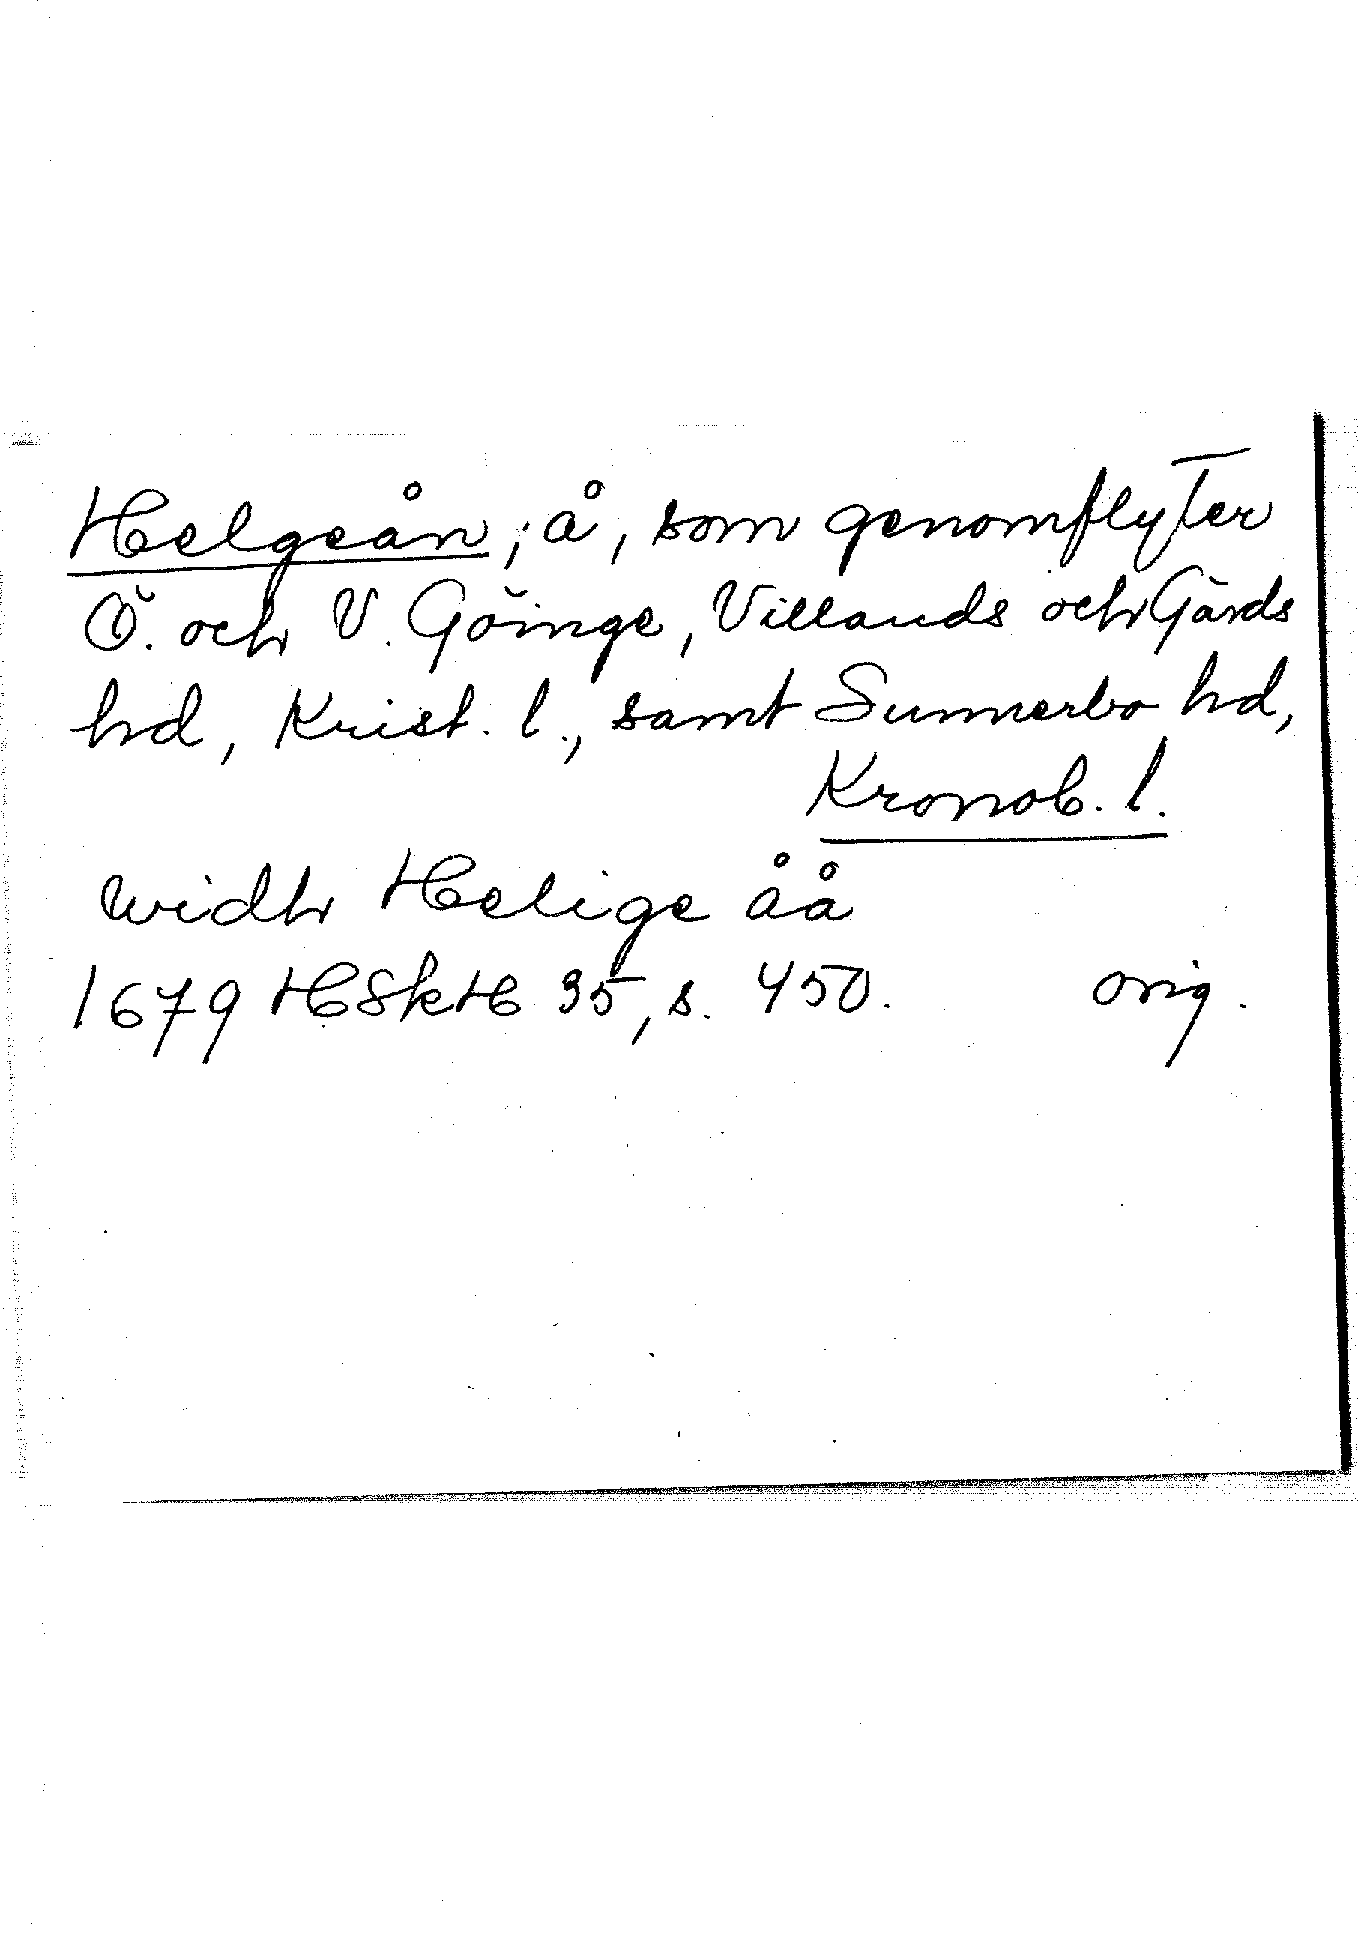 Helgeån; å, som genomflyter
Ö. och V. Göinge, Villands och Gärds
hd, Krist. l., samt Sunnerbo hd,
Kronob. l.
widh Helige åå
1679 HSkH 35, s. 450. orig.